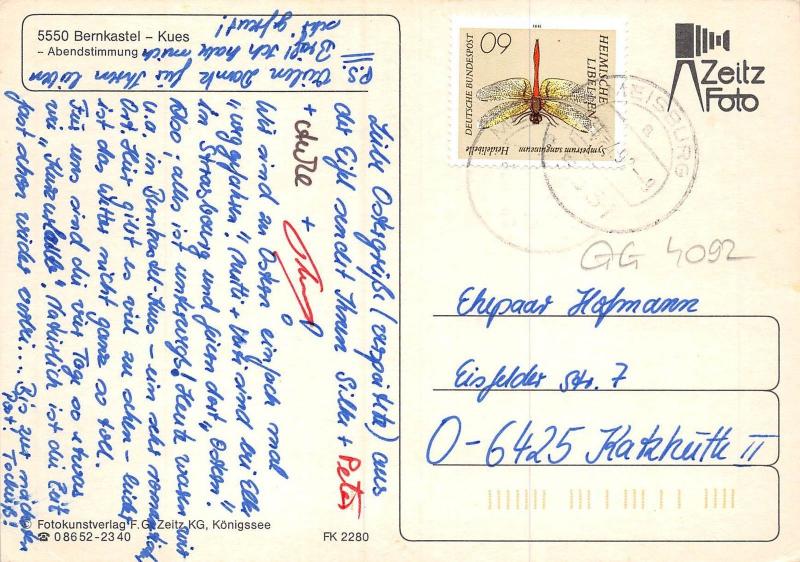 5550 Bernkastel – Kues
– Abendstimmung –
P.S. Vielen Dank für Ihren lieben
Brief! Ich habe mich
sehr gefreut!
Liebe Ostergrüße (verspätete) aus
der Eifel sendet Ihnen Silke + Peter
+
+
Wir sind zu Ostern einfach mal
"weggefahren". Mutti + Vati sind bei Elke
in Strasbourg und feiern dort "Ostern".
Also, alles ist unterwegs! Heute waren wir
u.a. in Bernkastel-Kues – ein sehr romantischer
Ort. Hier gibt es viel zu sehen – leider
ist das Wetter nicht ganz so toll.
Für uns sind die vier Tage so etwas
wie "Kurzurlaub". Natürlich ist die Zeit
fast schon wieder vorbei... Bis zur nächsten
Post! Tschüß!
© Fotokunstverlag F. G. Zeitz KG, Königssee
☎ 0 86 52 - 23 40
FK 2280
60
DEUTSCHE BUNDESPOST
HEIMISCHE
LIBELLEN
Sympetrum sanguineum
Heidelibelle
1991
Zeitz
Foto
GG 4092
Ehepaar Hofmann
Eisfelder Str. 7
O-6425 Katzhütte II